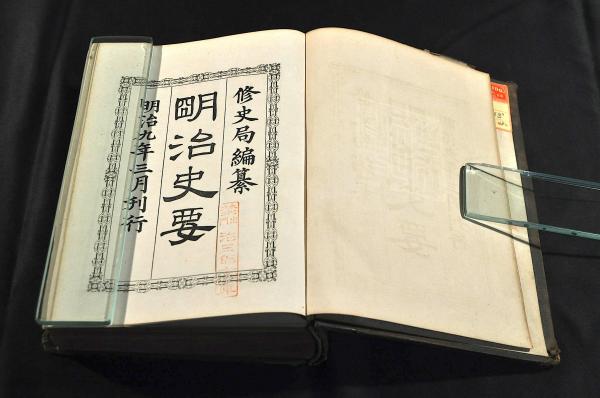 修史局編纂
明治史要
明治九年三月刊行